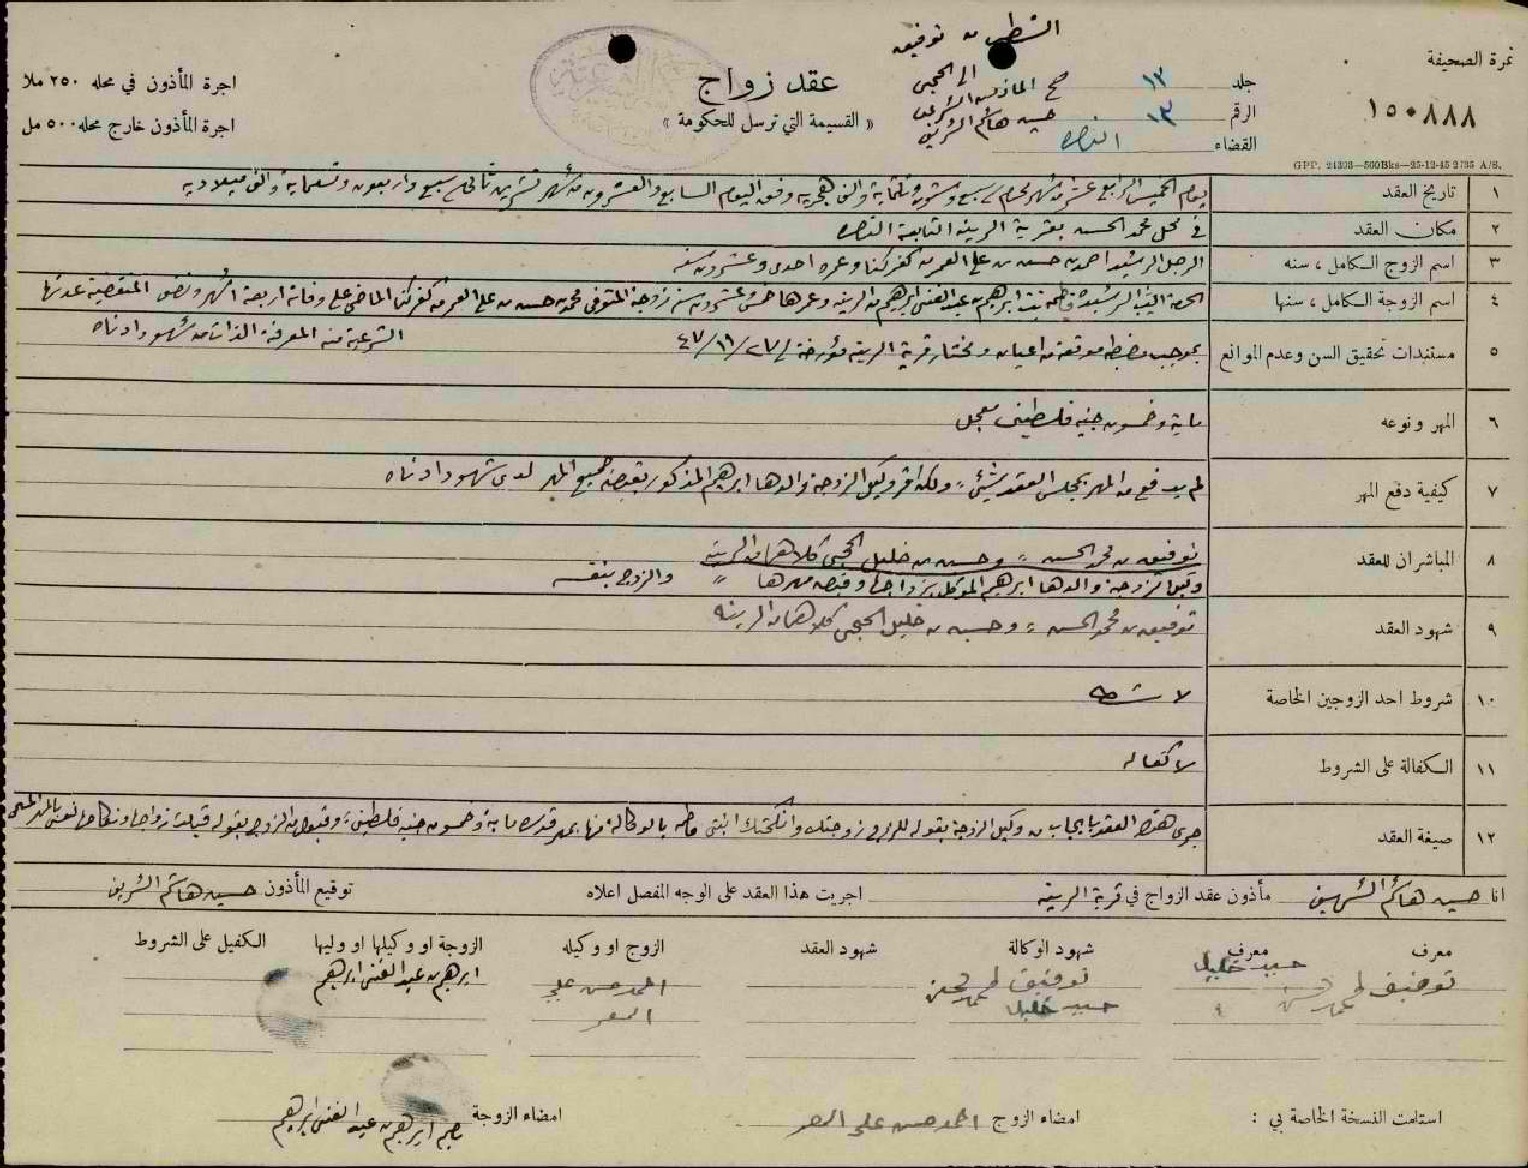 الشطب من توفيق
الى الحجي
صح المأذون الشرعي
حسين هاشم الشريف
نمرة الصحيفة
١٥٠٨٨٨
جلد ١٢
الرقم ١٣
القضاء الناصره
عقد زواج
« القسيمة التي ترسل للحكومة »
اجرة المأذون في محله ٢٥٠ ملا
اجرة المأذون خارج محله ٥٠٠ مل
GPT. 24303—500Bks—25-12-45 2736 A/S.
١ تاريخ العقد يوم الخميس الرابع عشر من شهر محرم سنة سبع وستون وثلثماية والف هجريه وفق اليوم السابع والعشرون من شهر تشرين ثاني سنة سبع واربعون وتسعماية والف ميلاديه
٢ مكان العقد في محل محمد الحسن بقرية الرينه التابعة الناصره
٣ اسم الزوج الكامل ، سنه الرجل الرشيد احمد بن حسن بن علي العمر من كفركنا وعمره احدى وعشرون سنه
٤ اسم الزوجة الكامل ، سنها الحرمة الثيب الرشيدة فاطمه بنت ابرهيم بن عبد الغني ابرهيم من الرينه وعمرها خمس وعشرون سنه زوجة المتوفى محمد بن حسن بن علي العمر من كفركنا الماضي على وفاته اربعة اشهر ونصف المنقضية عدتها
الشرعية منه المعرفة الذات من شهود ادناه
٥ مستندات تحقيق السن وعدم الموانع بموجب مضبطه موقعة من اعيان ومختار قرية الرينه مؤرخة في ٢٧/١١/٤٧
٦ المهر ونوعه ماية وخمسون جنيه فلسطيني معجل
٧ كيفية دفع المهر لم يدفع من المهر بمجلس العقد شيئ ، ولكن اقر وكيل الزوجة والدها ابرهيم المذكور بقبضه جميع المهر لدى شهود ادناه
٨ المباشران للعقد توفيق بن محمد الحسن ، وحسين بن خليل الحجي كلاهما من الرينه
وكيل الزوجة والدها ابرهيم الموكل بزواجها وقبض مهرها " والزوج بنفسه
٩ شهود العقد توفيق بن محمد الحسن ، وحسين بن خليل الحجي كلاهما من الرينه
١٠ شروط احد الزوجين الخاصة لا شرط
١١ الكفالة على الشروط لا كفاله
١٢ صيغة العقد جرى هذا العقد بايجاب من وكيل الزوجة بقوله للزوج زوجتك وانكحتك ابنتي فاطمه بالوكالة عنها بمهر قدره ماية وخمسون جنيه فلسطيني ، وقبول من الزوج بقوله قبلت زواجها ونكاحها لنفسي بالمهر المسمى
انا حسين هاشم الشريف مأذون عقد الزواج في قرية الرينه اجريت هذا العقد على الوجه المفصل اعلاه توقيع المأذون حسين هاشم الشريف
معرف معرف شهود الوكالة شهود العقد الزوج او وكيله الزوجة او وكيلها او وليها الكفيل على الشروط
توفيق محمد حسن حسين خليل توفيق محمد حسن احمد حسن علي ابرهيم بن عبد الغني ابرهيم
حسين خليل العمر
استلمت النسخة الخاصة بي : امضاء الزوج احمد حسن علي العمر امضاء الزوجة ابرهيم بن عبد الغني ابرهيم